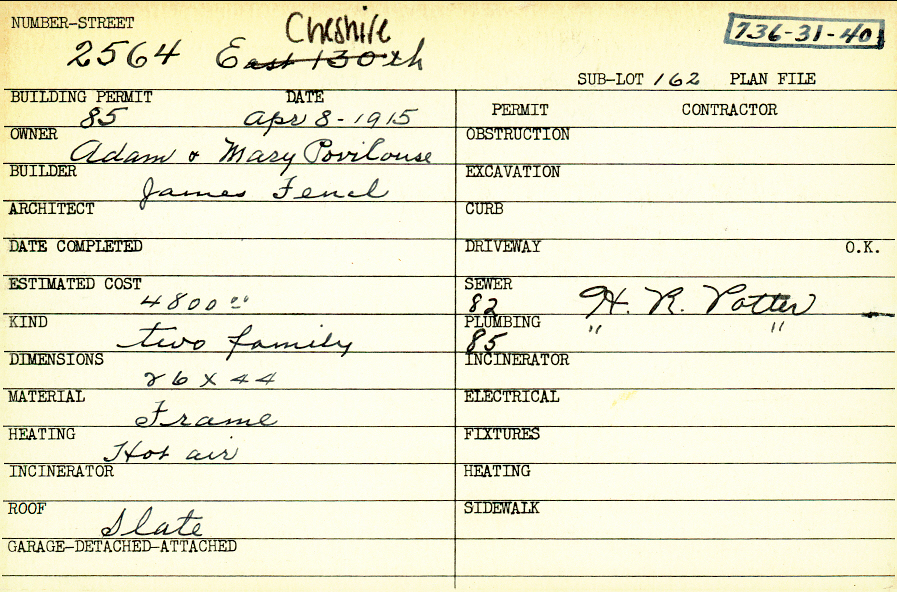 NUMBER-STREET
Cheshire
736-31-40
2564 East 130th
SUB-LOT 162 PLAN FILE
BUILDING PERMIT DATE
85 Apr 8-1915
PERMIT CONTRACTOR
OWNER
Adam & Mary Povilouse
OBSTRUCTION
BUILDER
James Fencl
EXCAVATION
ARCHITECT
CURB
DATE COMPLETED
DRIVEWAY O.K.
ESTIMATED COST
4800 00
SEWER
82 H. R. Potter —
KIND
two family
PLUMBING
85 " "
DIMENSIONS
26 X 44
INCINERATOR
MATERIAL
Frame
ELECTRICAL
HEATING
Hot air
FIXTURES
INCINERATOR
HEATING
ROOF
Slate
SIDEWALK
GARAGE-DETACHED-ATTACHED